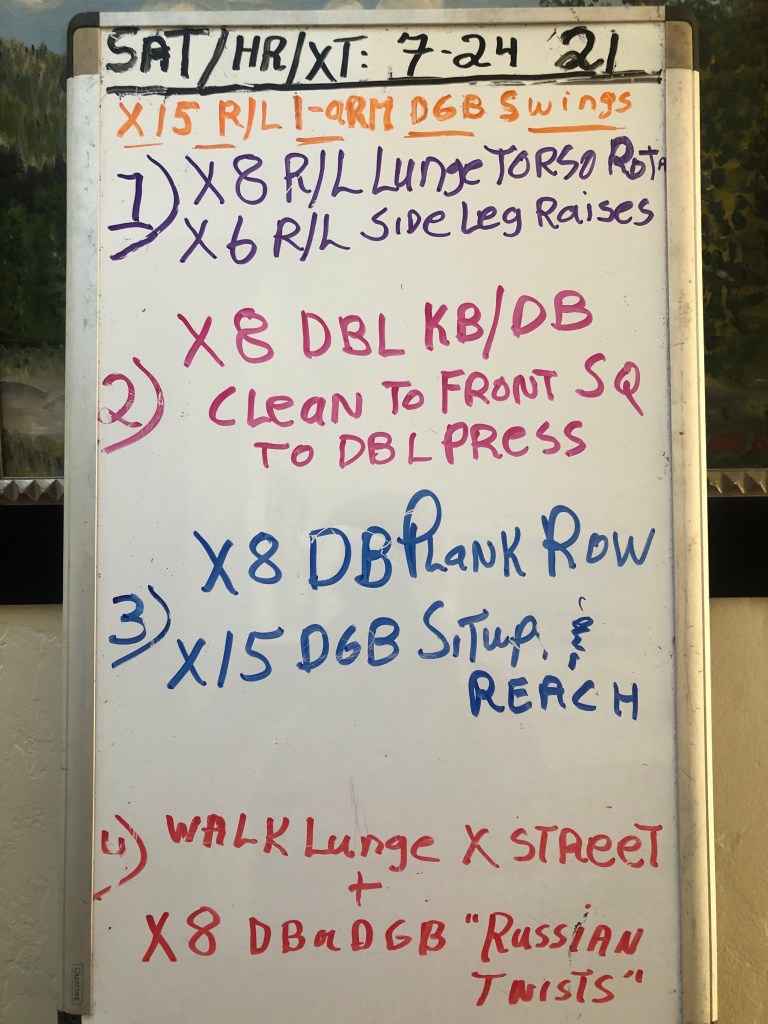 SAT/HR/XT: 7-24 '21
X15 R/L 1-aRM DGB Swings
1) X8 R/L Lunge TORSO ROTA
X6 R/L SIDE Leg Raises
X8 DBL KB/DB
2) CLeaN TO FRONT SQ
TO DBL PRESS
X8 DB PLANK ROW
3) X15 DGB SiTup, &
REACH
4) WALK Lunge X STReeT
+
X8 DB a DGB "RussiAN
TwisTS"
Quartet